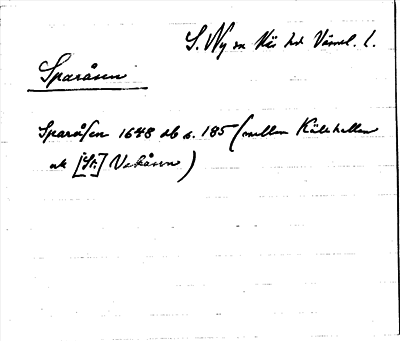 S. Ny sn Näs hd Värml. l.
Sparåsen
Sparåsen 1648 db s. 185 (mellan Källehellen
ok [St:] Vakåsen)